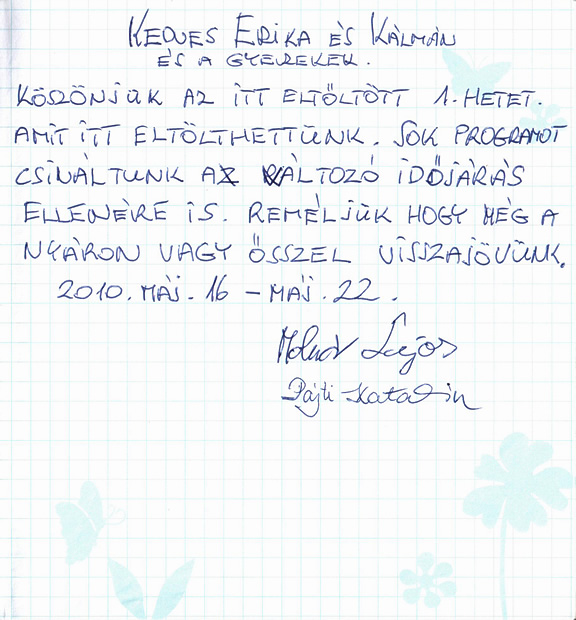 KEDVES ERIKA ÉS KÁLMÁN
ÉS A GYEREKEK.
KÖSZÖNJÜK AZ ITT ELTÖLTÖTT 1. HETET.
AMIT ITT ELTÖLTHETTÜNK. SOK PROGRAMOT
CSINÁLTUNK A VÁLTOZÓ IDŐJÁRÁS
ELLENÉRE IS. REMÉLJÜK HOGY MÉG A
NYÁRON VAGY ŐSSZEL VISSZAJÖVÜNK.
2010. MÁJ. 16 - MÁJ. 22.
Molnár Lajos
Pájti Katalin